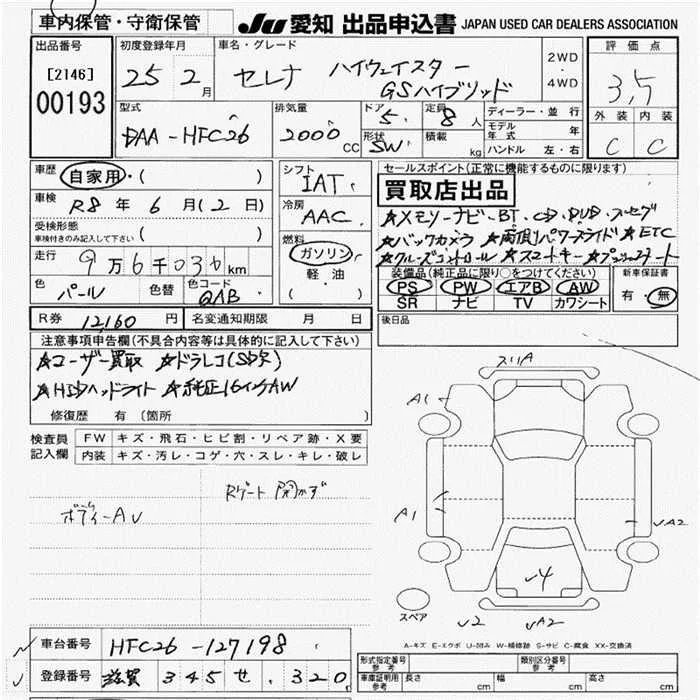 車内保管・守衛保管
JU 愛知 出品申込書 JAPAN USED CAR DEALERS ASSOCIATION
出品番号
[2146]
00193
初度登録年月
25 2月
車名・グレード
セレナ ハイウェイスター
GSハイブリッド
2WD
・
4WD
評価点
3.5
外装 内装
C C
型式
DAA-HFC26
排気量
2000 CC
ドア 5
形状 SW
定員 8人
積載 kg
ディーラー・並行
モデル年式 年
ハンドル 左・右
車歴 自家用・( )
車検 R8年 6月(2日)
受検形態
車検付きのみ記入して下さい ( )
走行 9万6千030km
色 パール 色替 色コード QAB
シフト IAT
冷房 AAC
燃料
ガソリン
軽油
( )
セールスポイント(正常に機能するものに限ります)
買取店出品
★メモリーナビ・BT・CD・DVD・フルセグ
★バックカメラ ★両側パワースライド ★ETC
★クルーズコントロール ★スマートキー ★プッシュスタート
装備品(純正品に限り○をつけてください)
PS PW エアB AW
SR ナビ TV カワシート
新車保証書
有・無
R券 12,160円 名変通知期限 月 日
後日品
注意事項申告欄(不具合内容等は具体的に記入して下さい)
★ユーザー買取 ★ドラレコ(SD欠)
★HIDヘッドライト ★純正16インチAW
修復歴 有(箇所 )
検査員記入欄
FW キズ・飛石・ヒビ割・リペア跡・X要
内装 キズ・汚レ・コゲ・穴・スレ・キレ・破レ
Rゲート 開かず
ボディーAU
スリA
A1
A1
UA2
U4
スペア
U2 UA2
A-キズ E-エクボ U-凹み W-補修跡 S-サビ C-腐食 XX-交換済
車台番号 HFC26-127198
登録番号 滋賀 345 せ・320
形式指定番号
参考
類別区分番号
参考
車庫証明用
参考
長さ cm 幅 cm 高さ cm